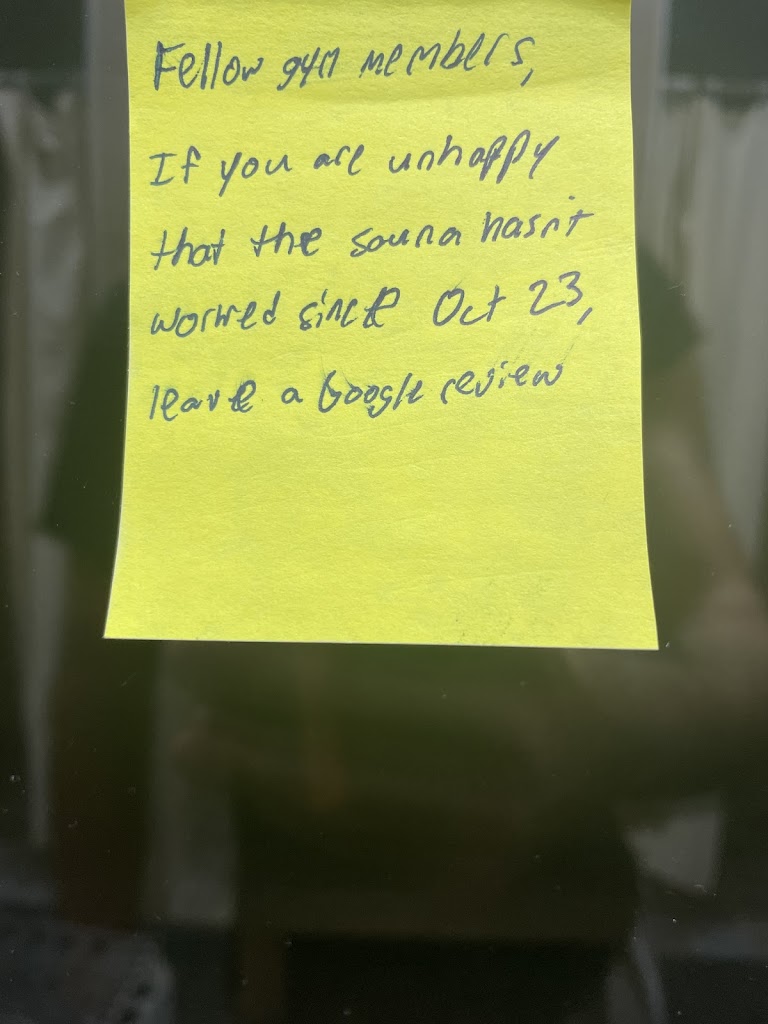 Fellow gym members,
If you are unhappy
that the sauna hasn't
worked since Oct 23,
leave a Google review